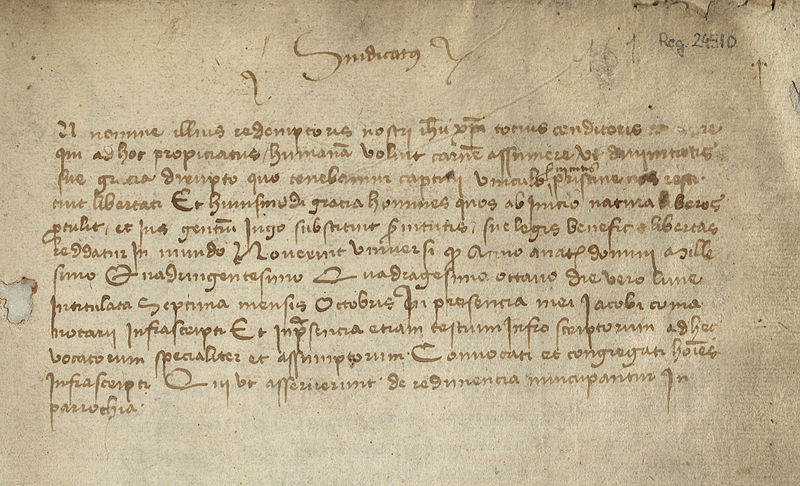 Sindicatus
Reg. 24510
N nomine illius redemptoris nostri ihu xpi totius conditoris re
qui ad hoc propiciatus humanã voluit carnẽ assumere vt divinitatis
sue gracia dirupto quo tenebamur captivi vinculo pristine nos resti
tuit libertati Et huiusmodi gracia homines quos ab inicio natura liberos
ptulit, et ius gentiũ iugo substituit suitutis, sue legis beneficio libertas
reddatur In mundo Noverint universi q Anno anatz domini Mille
simo Quadringentesimo Quadragesimo octavo die vero lune
Intitulata Septima mensis Octobris In presencia mei Jacobi coma
notarii Infrascripti Et Inpsencia etiam testium Infra scriptorum ad hec
vocatorum specialiter et assumptorum. Convocati et congregati hoies
Infrascripti Qui vt asseruerunt de redimencia nuncupantur In
parrochia.